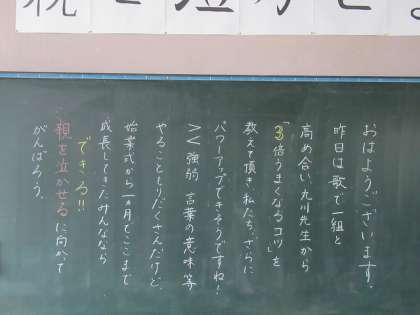 親を泣かせる
おはようございます。
昨日は歌で一組と
高め合い、九川先生から
「③倍うまくなるコツ」を
教えて頂き、私たち、さらに
パワーアップできそうですね!
＞＜ 強弱 言葉の意味等
やることもりだくさんだけど、
始業式から1ヵ月でここまで
成長してきたみんななら
できる!!
親を泣かせるに向かって
がんばろう。